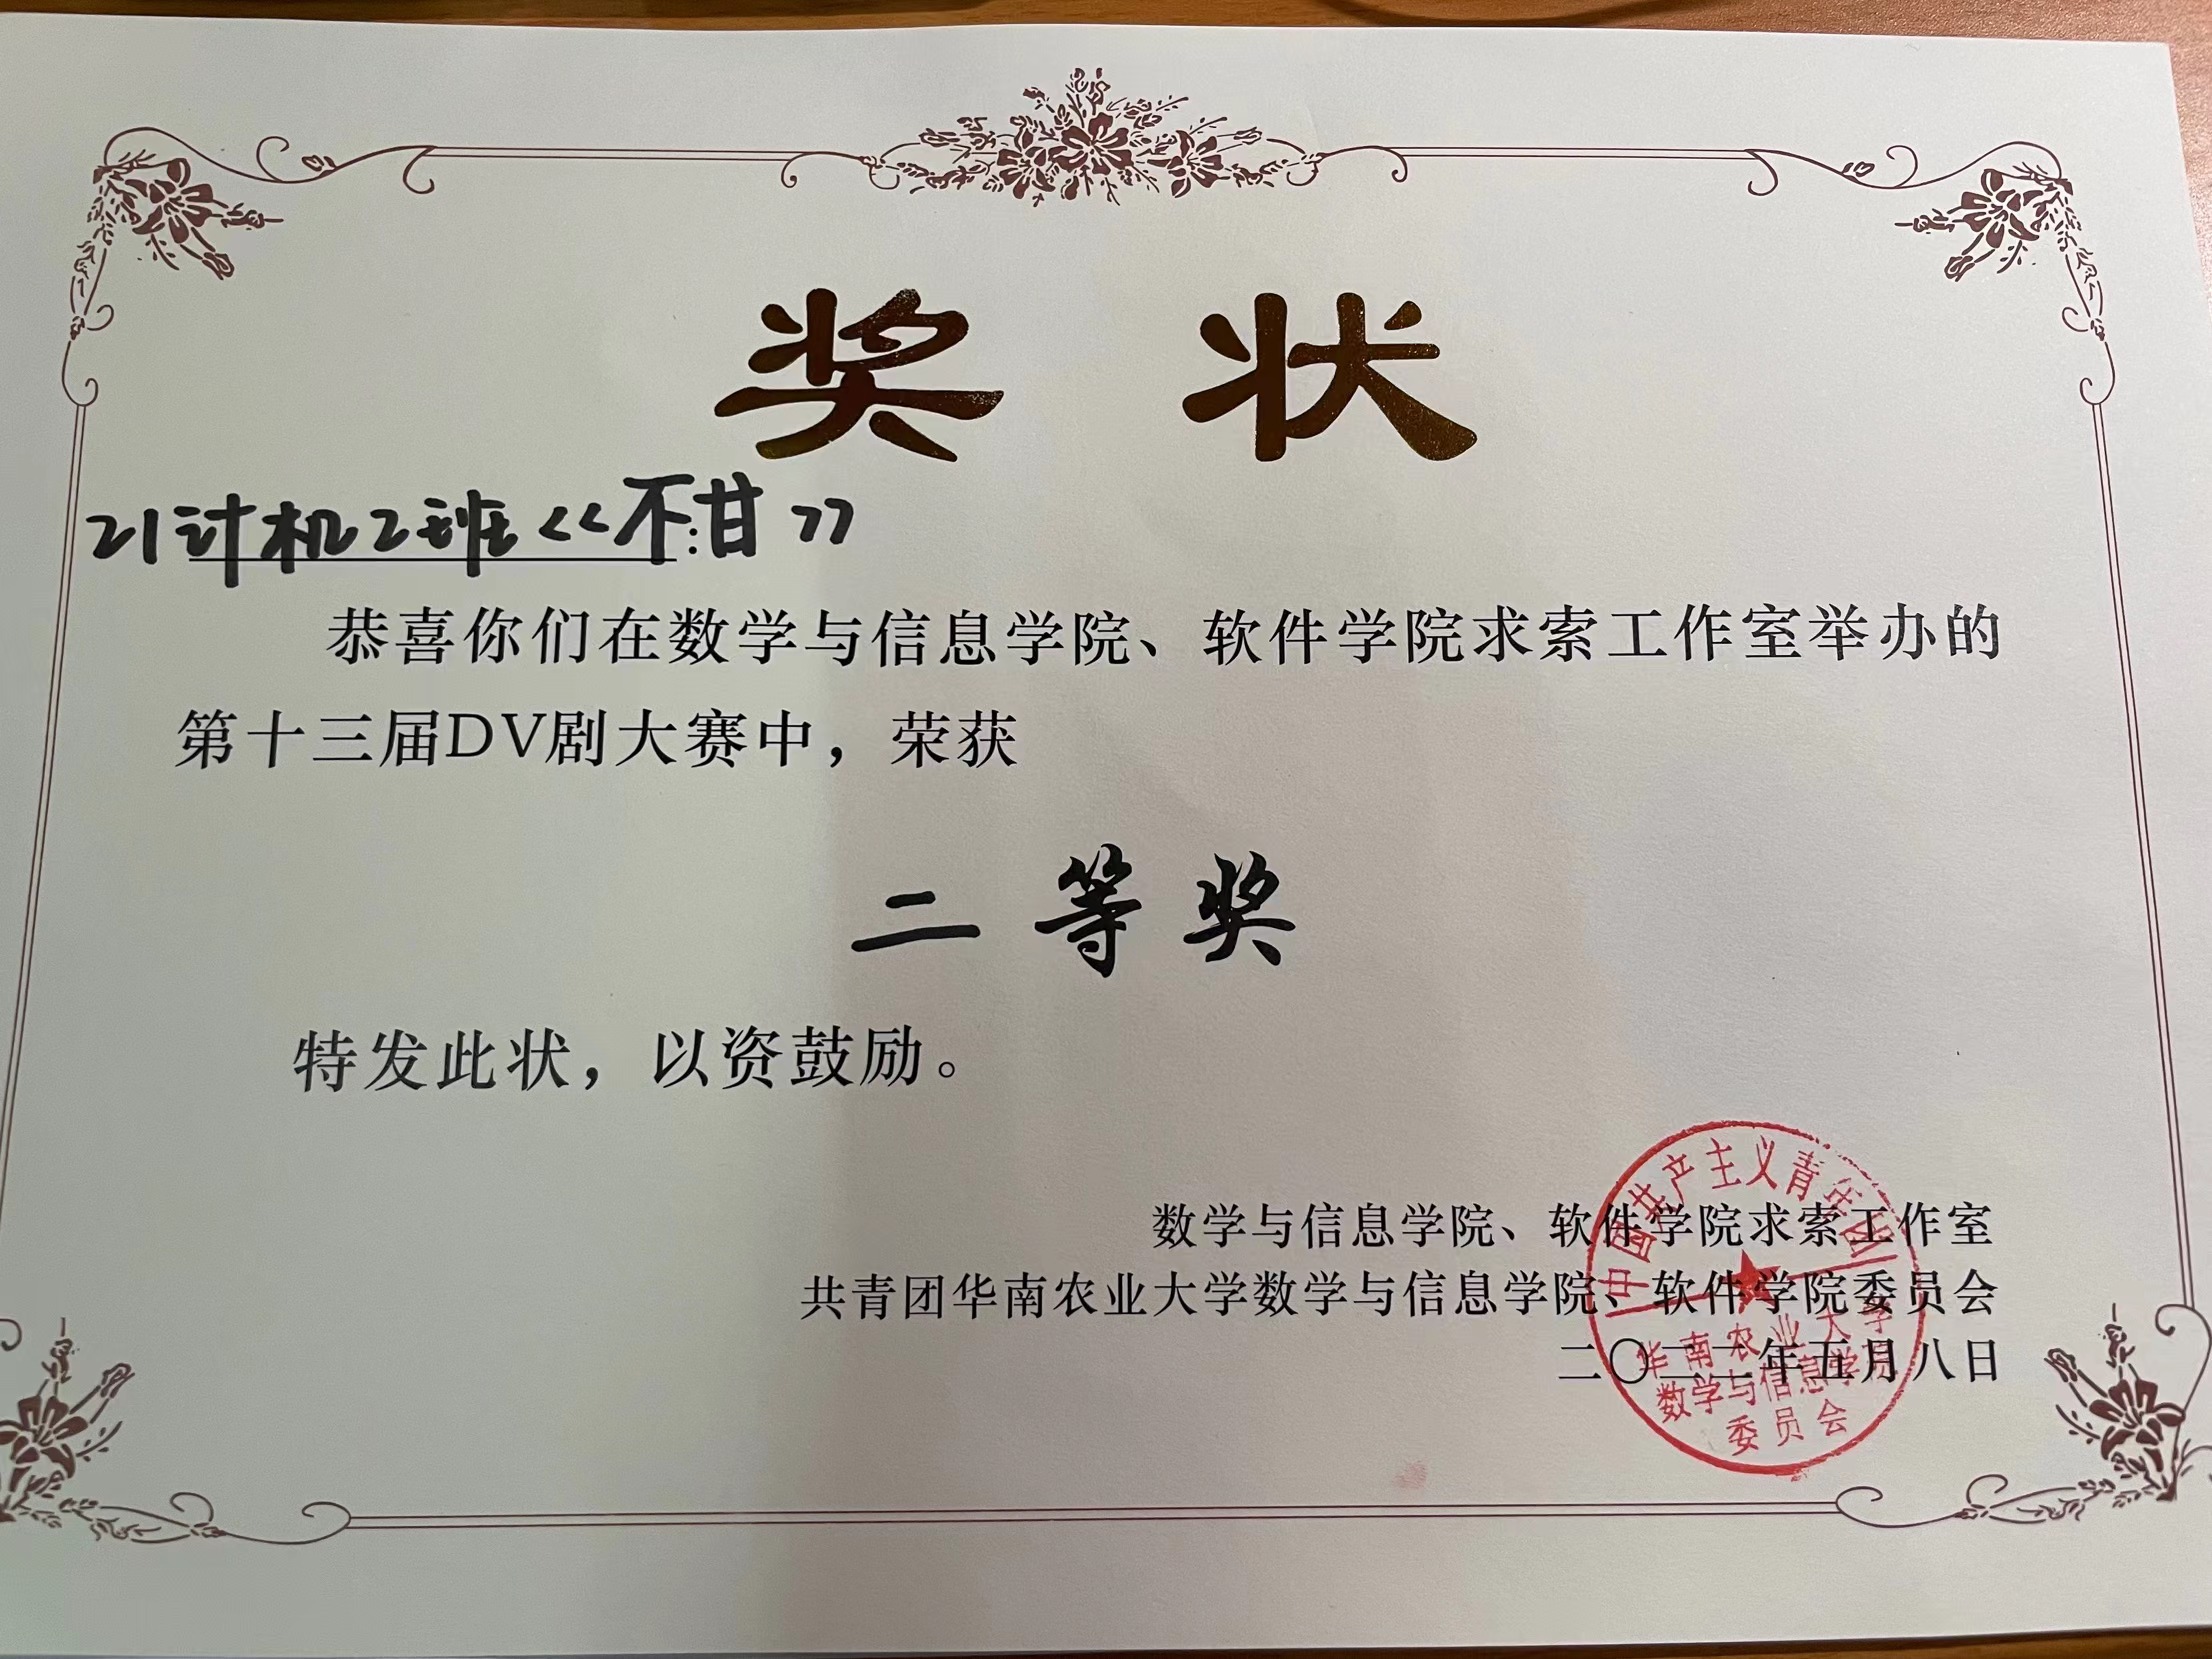 奖 状
21计机2班《不甘》:
恭喜你们在数学与信息学院、软件学院求索工作室举办的
第十三届DV剧大赛中，荣获
二等奖
特发此状，以资鼓励。
数学与信息学院、软件学院求索工作室
共青团华南农业大学数学与信息学院、软件学院委员会
二〇二二年五月八日
中国共产主义青年团
华南农业大学
数学与信息学院
委员会